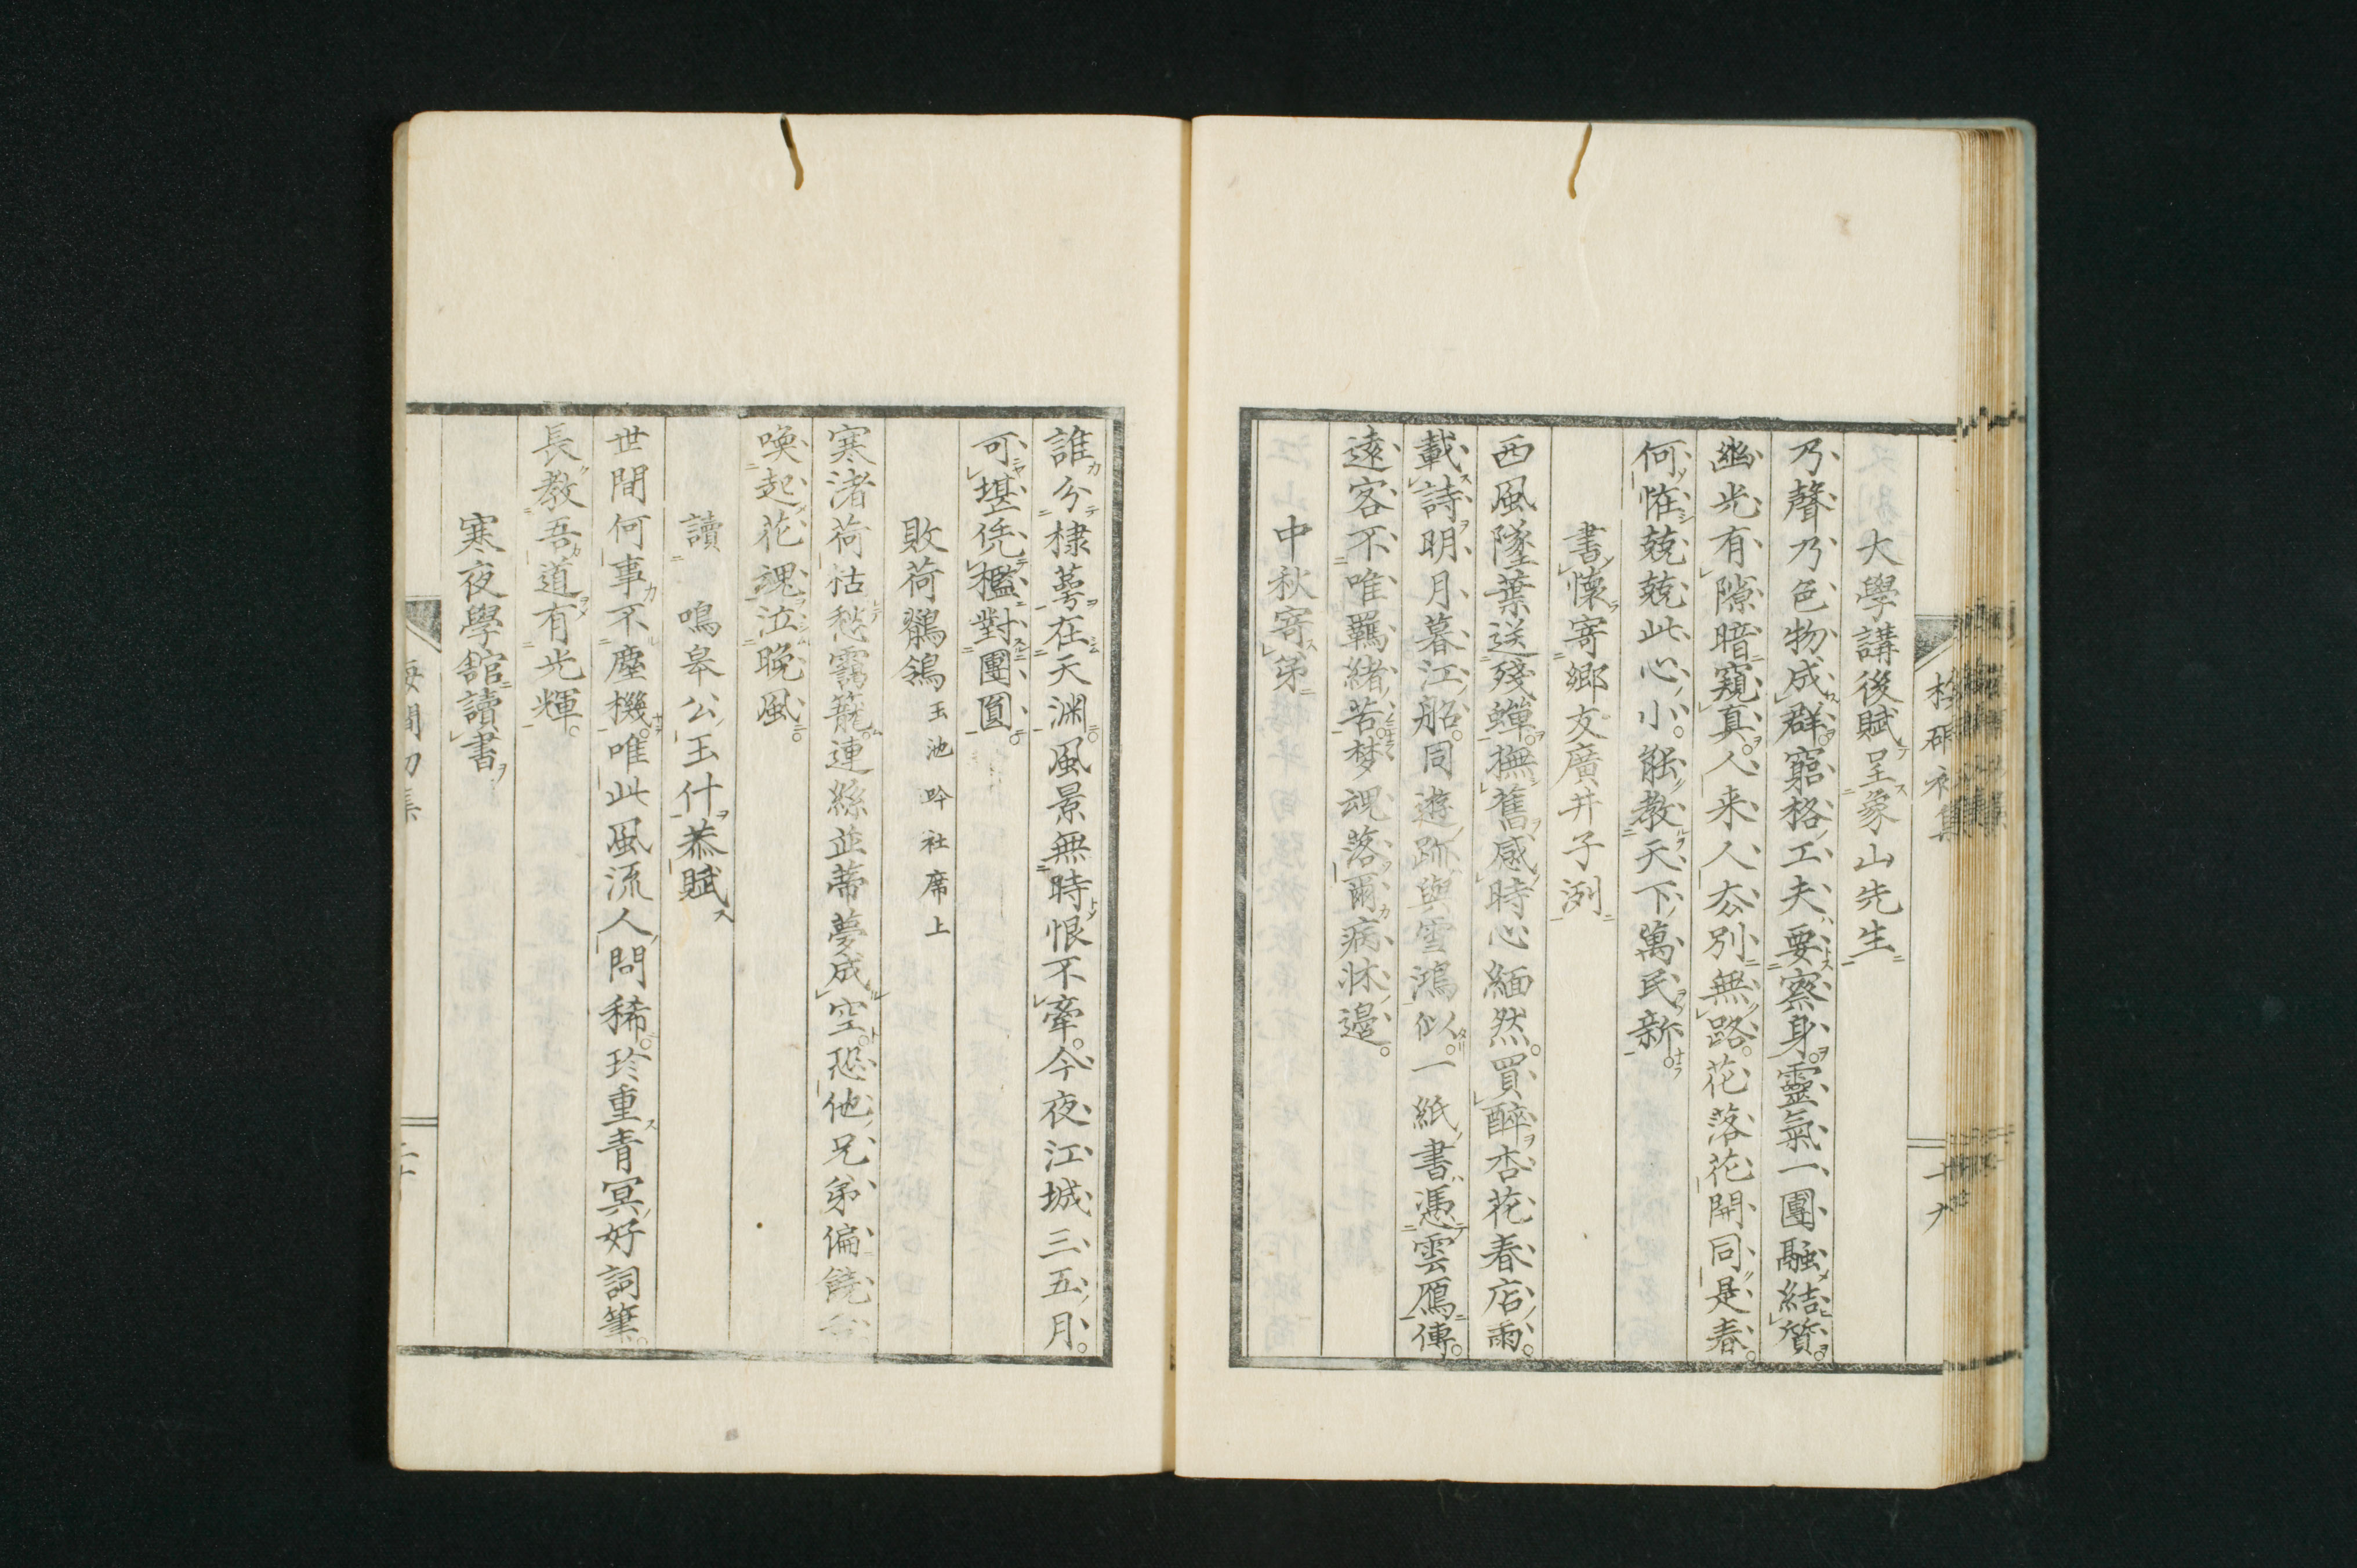 大學講後賦呈象山先生
乃聲乃色物成群。窮格工夫要察身。靈氣一團融結質。
幽光有隙暗窺真。人来人去別無路。花落花開同是春。
何怪兢兢此心小。能教天下萬民新。
書懷寄郷友廣井子洌
西風墜葉送殘蟬。撫舊感時心緬然。買醉杏花春店雨。
載詩明月暮江船。同遊跡與雪鴻似。一紙書憑雲鴈傳。
遠客不唯羈緒苦。梦魂落爾病牀邉。
中秋寄弟
十九
誰分棣萼在天渊。風景無時恨不牽。今夜江城三五月。
可堪凭檻對團圓。
敗荷鶺鴒玉池吟社席上
寒渚荷枯愁靄籠。連絲並蒂夢成空。恐他兄弟偏饒
喚起花魂泣晩風。
讀鳴皋公玉什恭賦
世間何事不塵機。唯此風流人問稀。珍重青冥好詞筆。
長教吾道有光輝。
寒夜學舘讀書